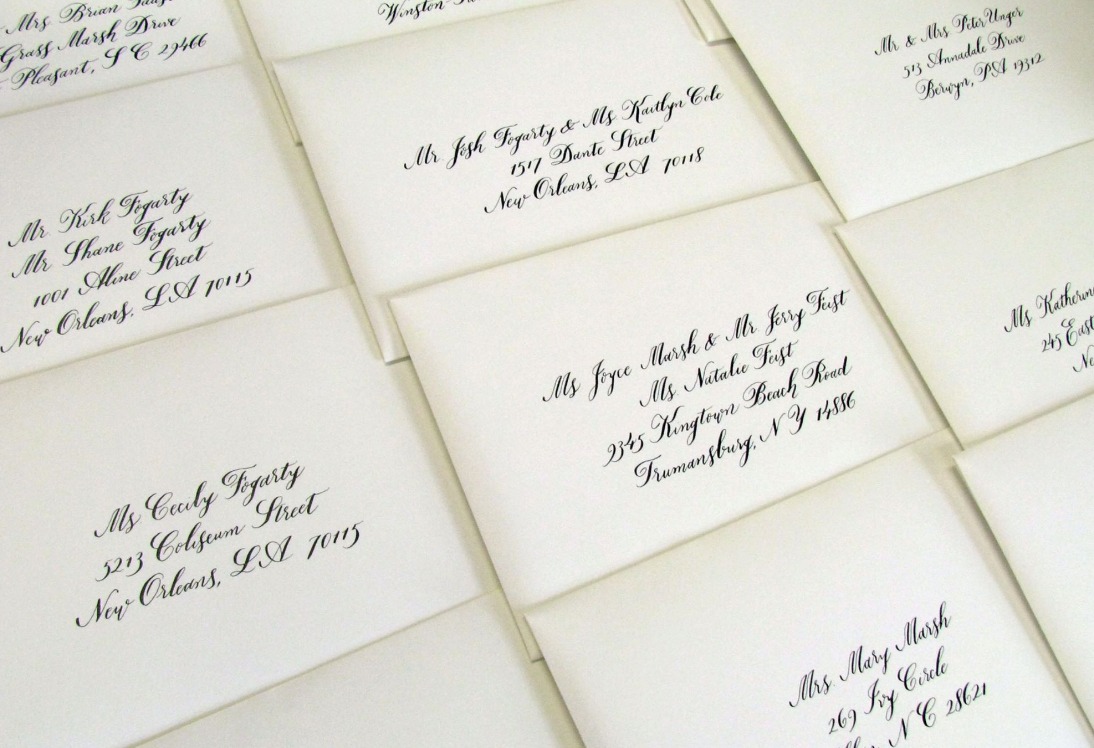 Mrs Brian
Grass Marsh Drive
Pleasant, S C 29466
Winston-
Mr & Mrs Peter Unger
513 Annadale Drive
Berwyn, PA 19312
Mr Josh Fogarty & Ms Kaitlyn Cole
1517 Dante Street
New Orleans, LA 70118
Mr Kirk Fogarty
Mr Shane Fogarty
1001 Aline Street
New Orleans, LA 70115
Ms Joyce Marsh & Mr Jerry Feist
Ms Natalie Feist
2345 Kingtown Beach Road
Trumansburg, N Y 14886
Ms Katherin
245 East
Ne
Ms Cecily Fogarty
5213 Coliseum Street
New Orleans, LA 70115
Mrs Mary Marsh
269 Ivy Circle
N C 28621